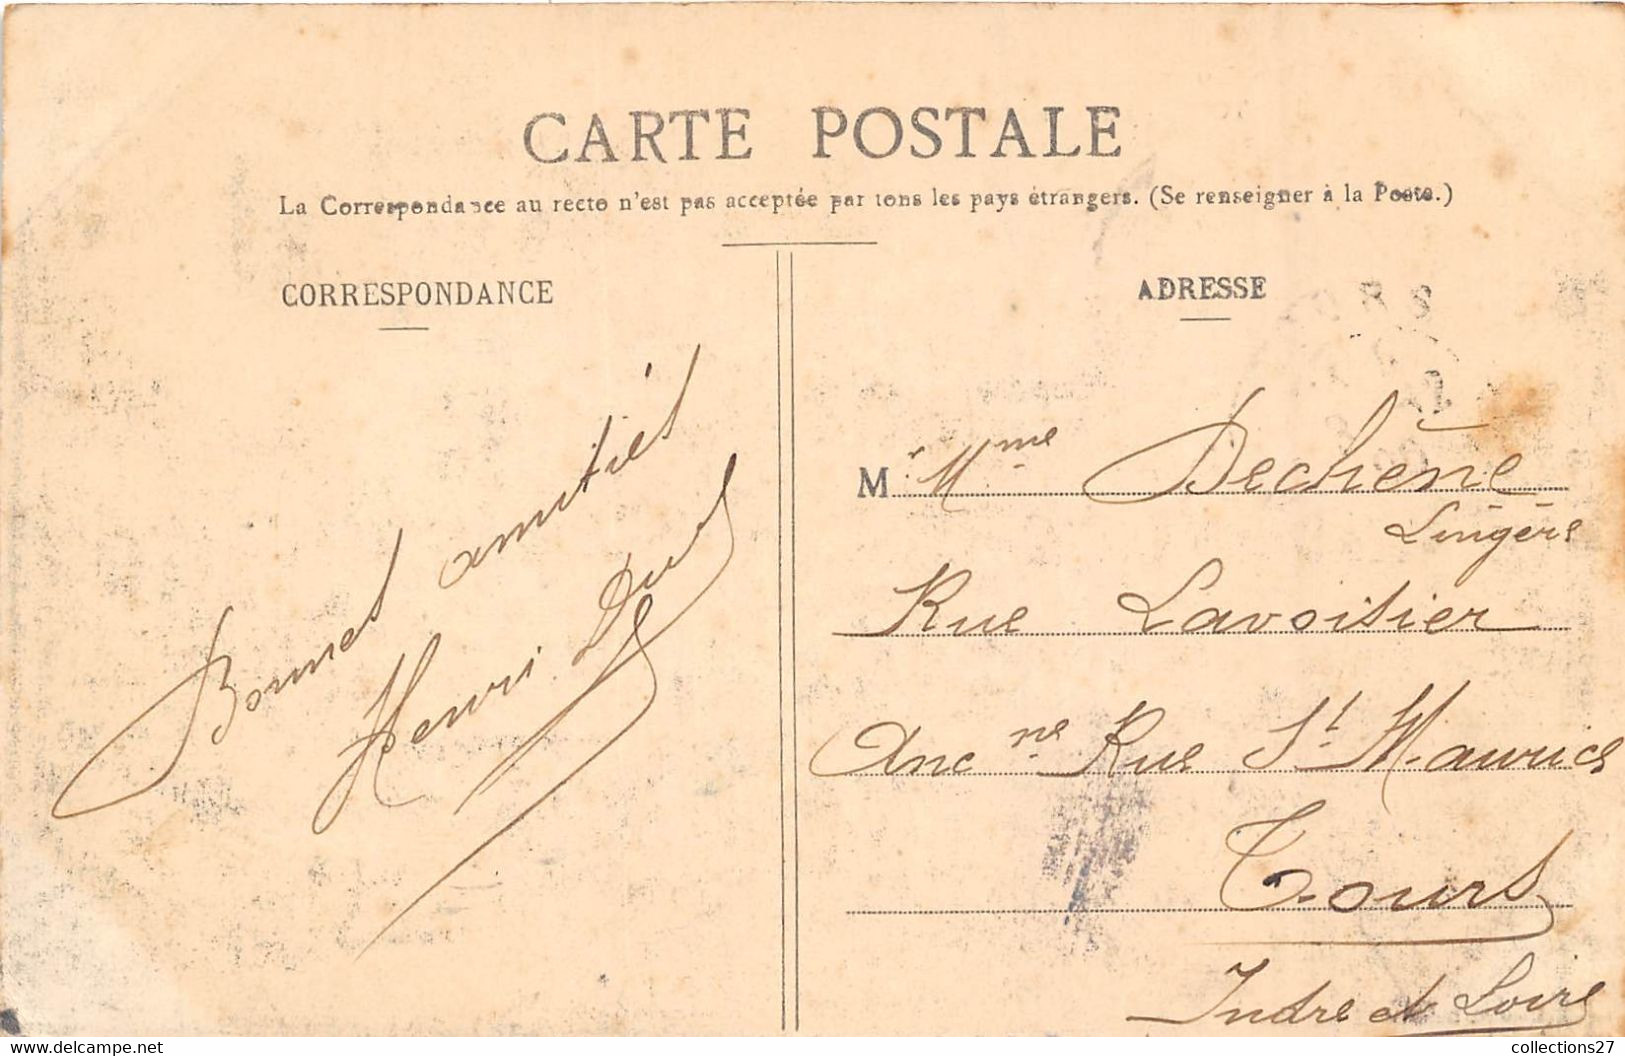 CARTE POSTALE
La Correspondance au recto n'est pas acceptée par tous les pays étrangers. (Se renseigner à la Poste.)
CORRESPONDANCE
Bonnes amitiés
Henri
ADRESSE
M r Mme Dechêne
Lingère
Rue Lavoisier
Anc ne Rue St Maurice
Tours
Indre et Loire
https://www.delcampe.net
collections27